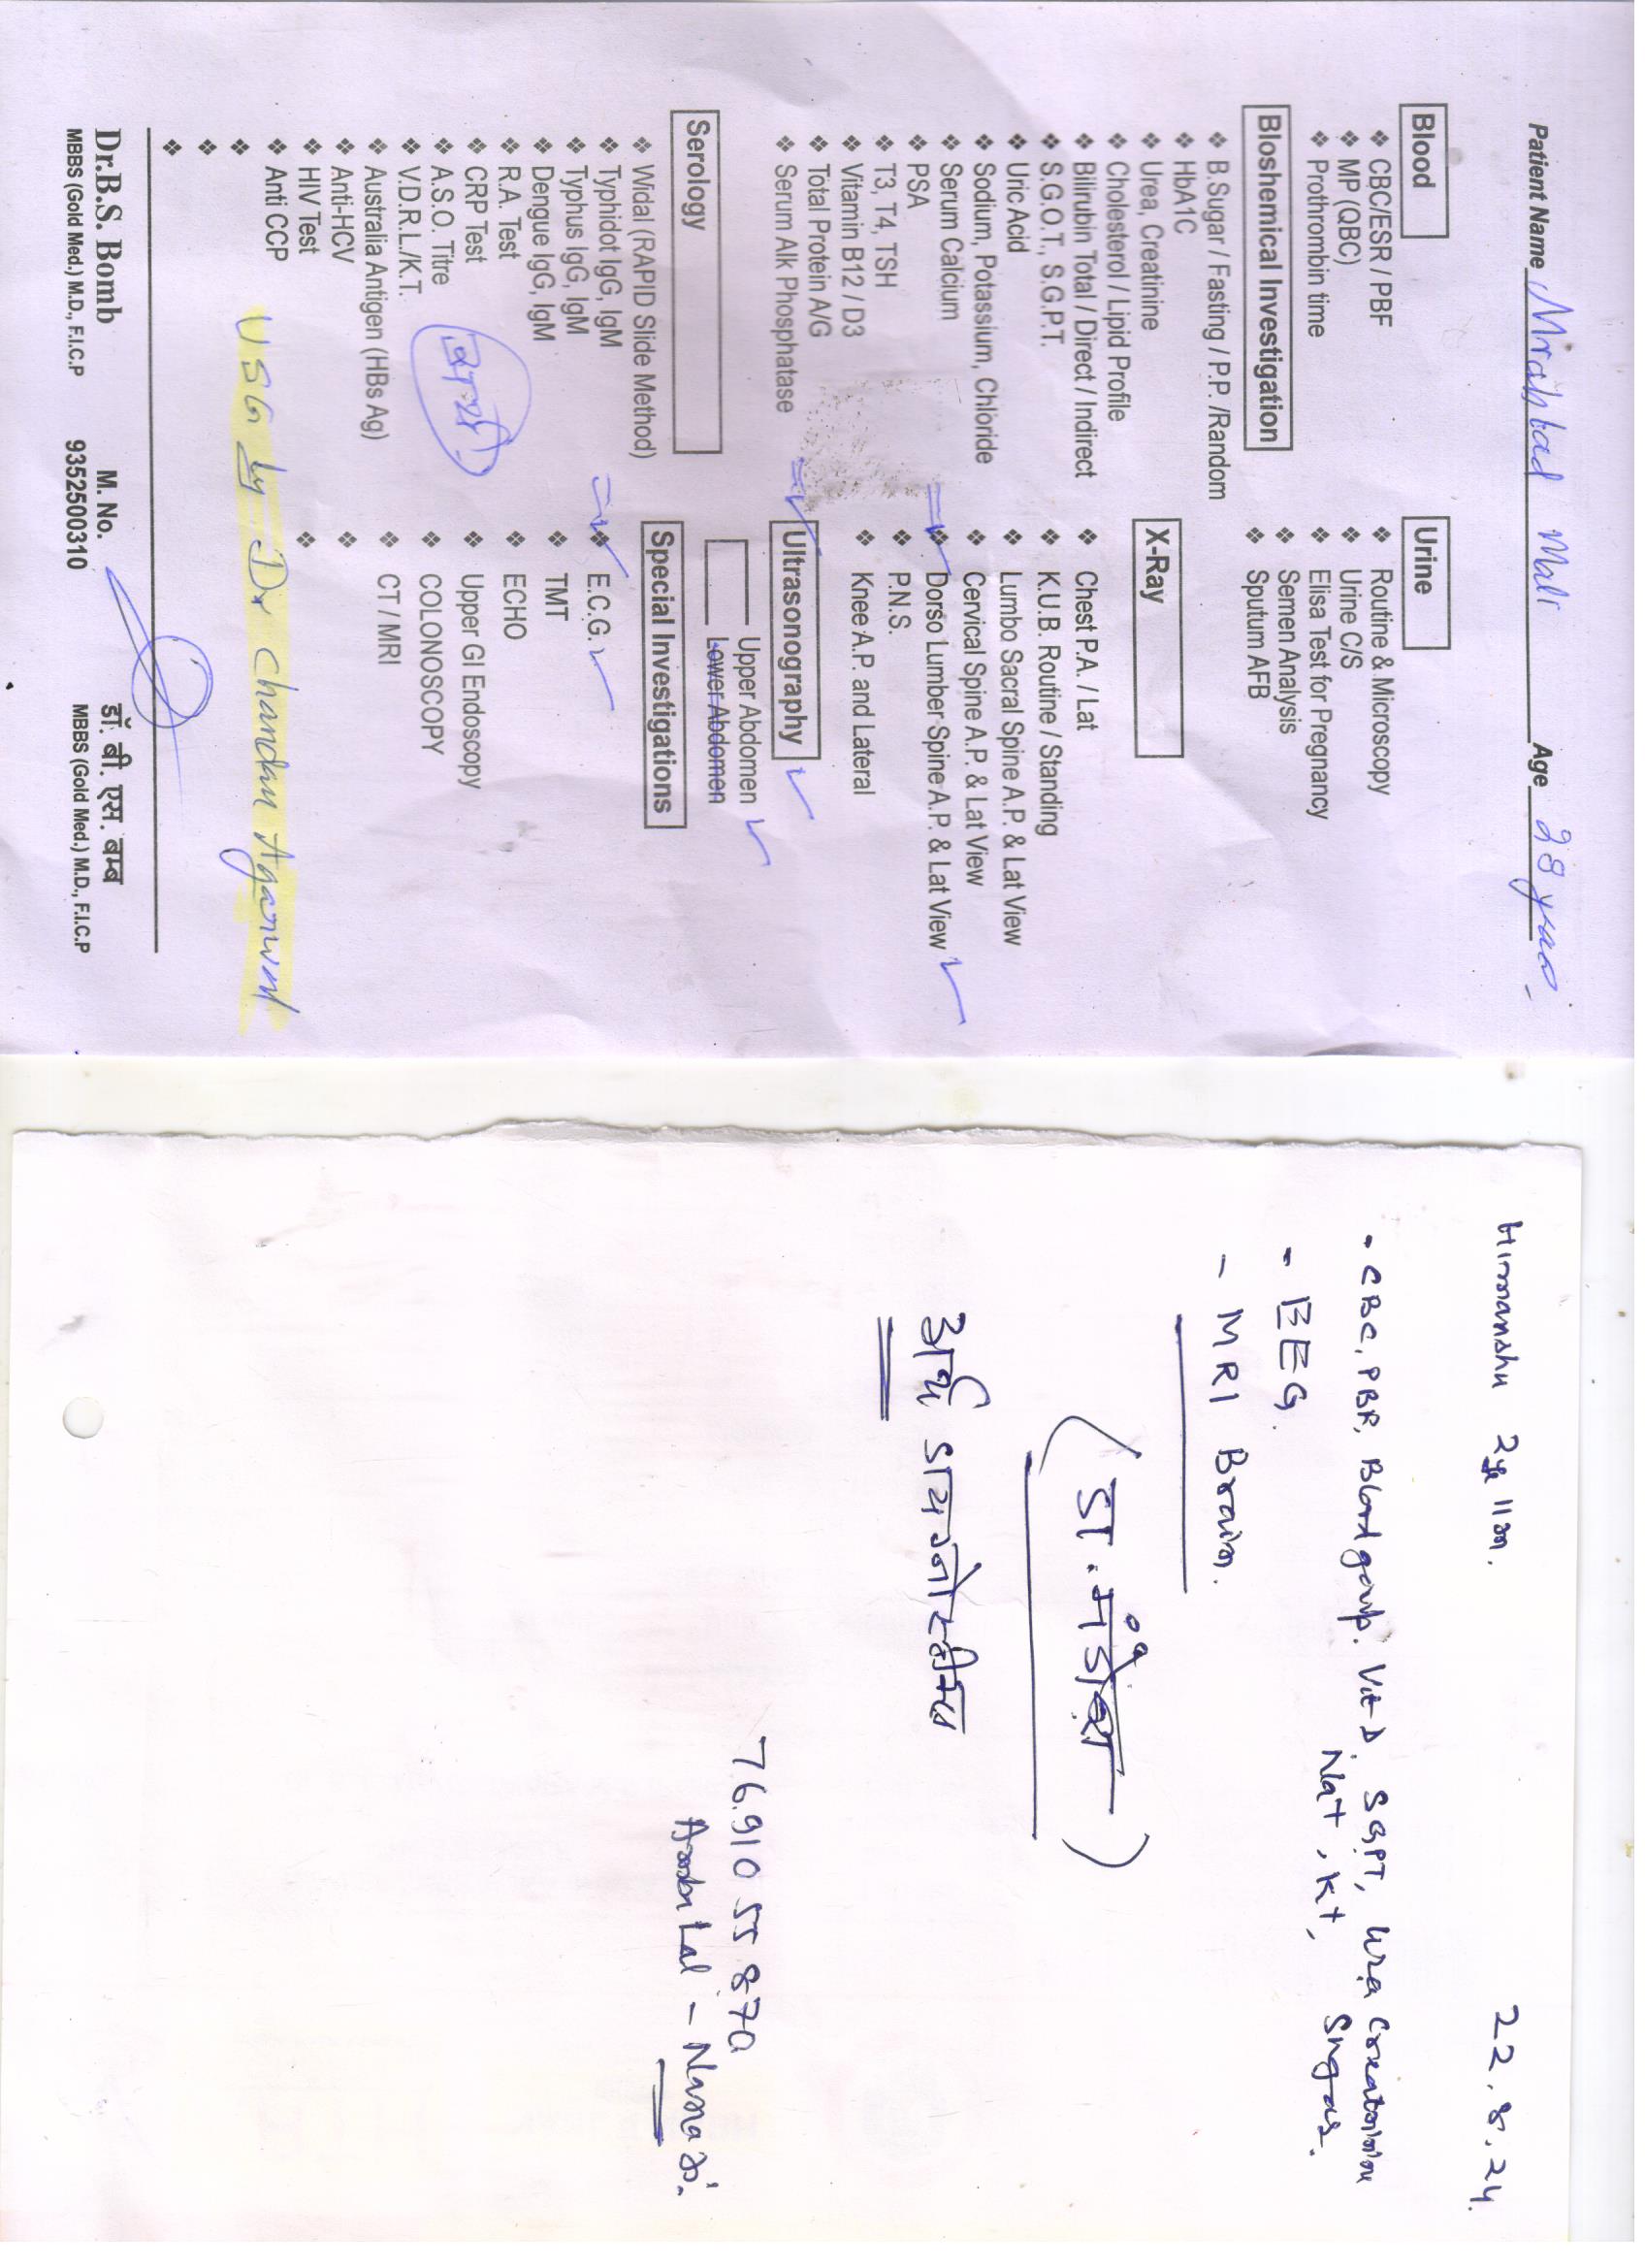 Patient Name Mrahlad Mali Age 28 years
Blood
❖ CBC/ESR / PBF
❖ MP (QBC)
❖ Prothrombin time
Bloshemical Investigation
❖ B.Sugar / Fasting / P.P. /Random
❖ HbA1C
❖ Urea, Creatinine
❖ Cholesterol / Lipid Profile
❖ Bilirubin Total / Direct / Indirect
❖ S.G.O.T., S.G.P.T.
❖ Uric Acid
❖ Sodium, Potassium, Chloride
❖ Serum Calcium
❖ PSA
❖ T3, T4, TSH
❖ Vitamin B12 / D3
❖ Total Protein A/G
❖ Serum Alk Phosphatase
Serology
❖ Widal (RAPID Slide Method)
❖ Typhidot IgG, IgM
❖ Typhus IgG, IgM
❖ Dengue IgG, IgM
❖ R.A. Test
❖ CRP Test
❖ A.S.O. Titre
❖ V.D.R.L./K.T.
❖ Australia Antigen (HBs Ag)
❖ Anti-HCV
❖ HIV Test
❖ Anti CCP
Urine
❖ Routine & Microscopy
❖ Urine C/S
❖ Elisa Test for Pregnancy
❖ Semen Analysis
❖ Sputum AFB
X-Ray
❖ Chest P.A. / Lat
❖ K.U.B. Routine / Standing
❖ Lumbo Sacral Spine A.P. & Lat View
❖ Cervical Spine A.P. & Lat View
❖ Dorso Lumber Spine A.P. & Lat View
❖ P.N.S.
❖ Knee A.P. and Lateral
Ultrasonography
Upper Abdomen
Lower Abdomen
Special Investigations
❖ E.C.G.
❖ TMT
❖ ECHO
❖ Upper GI Endoscopy
❖ COLONOSCOPY
❖ CT / MRI
USG by Dr Chandan Agarwal
Dr.B.S. Bomb
MBBS (Gold Med.) M.D., F.I.C.P
M. No.
9352500310
डॉ. बी. एस. बम्ब
MBBS (Gold Med.) M.D., F.I.C.P
Himanshu 2yr 11m. 22.8.24
• CBC, PBF, Blood group. Vit D SGPT, Urea Creatinine
Na+, K+, Sugar.
• EEG.
- MRI Brain.
अर्थ डायग्नोस्टीक्स
76910 55870